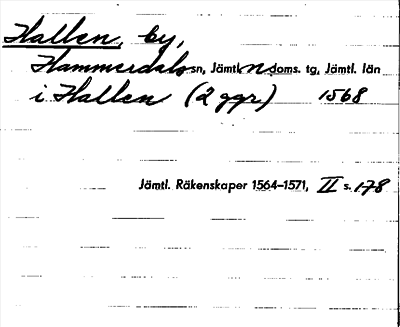 Hallen, by,
Hammerdals sn, Jämtl. n doms. tg, Jämtl. län
i Hallen (2 ggr) 1568
Jämtl. Räkenskaper 1564–1571, II s. 178